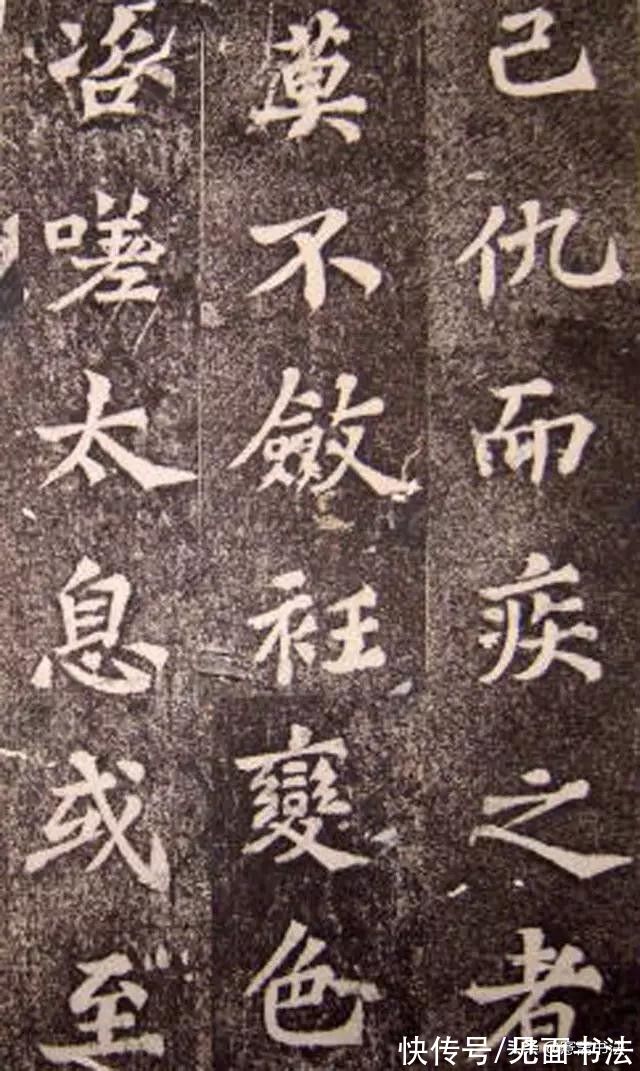 己仇而疾之者
莫不斂衽變色
咨嗟太息或至
快传号/见面书法